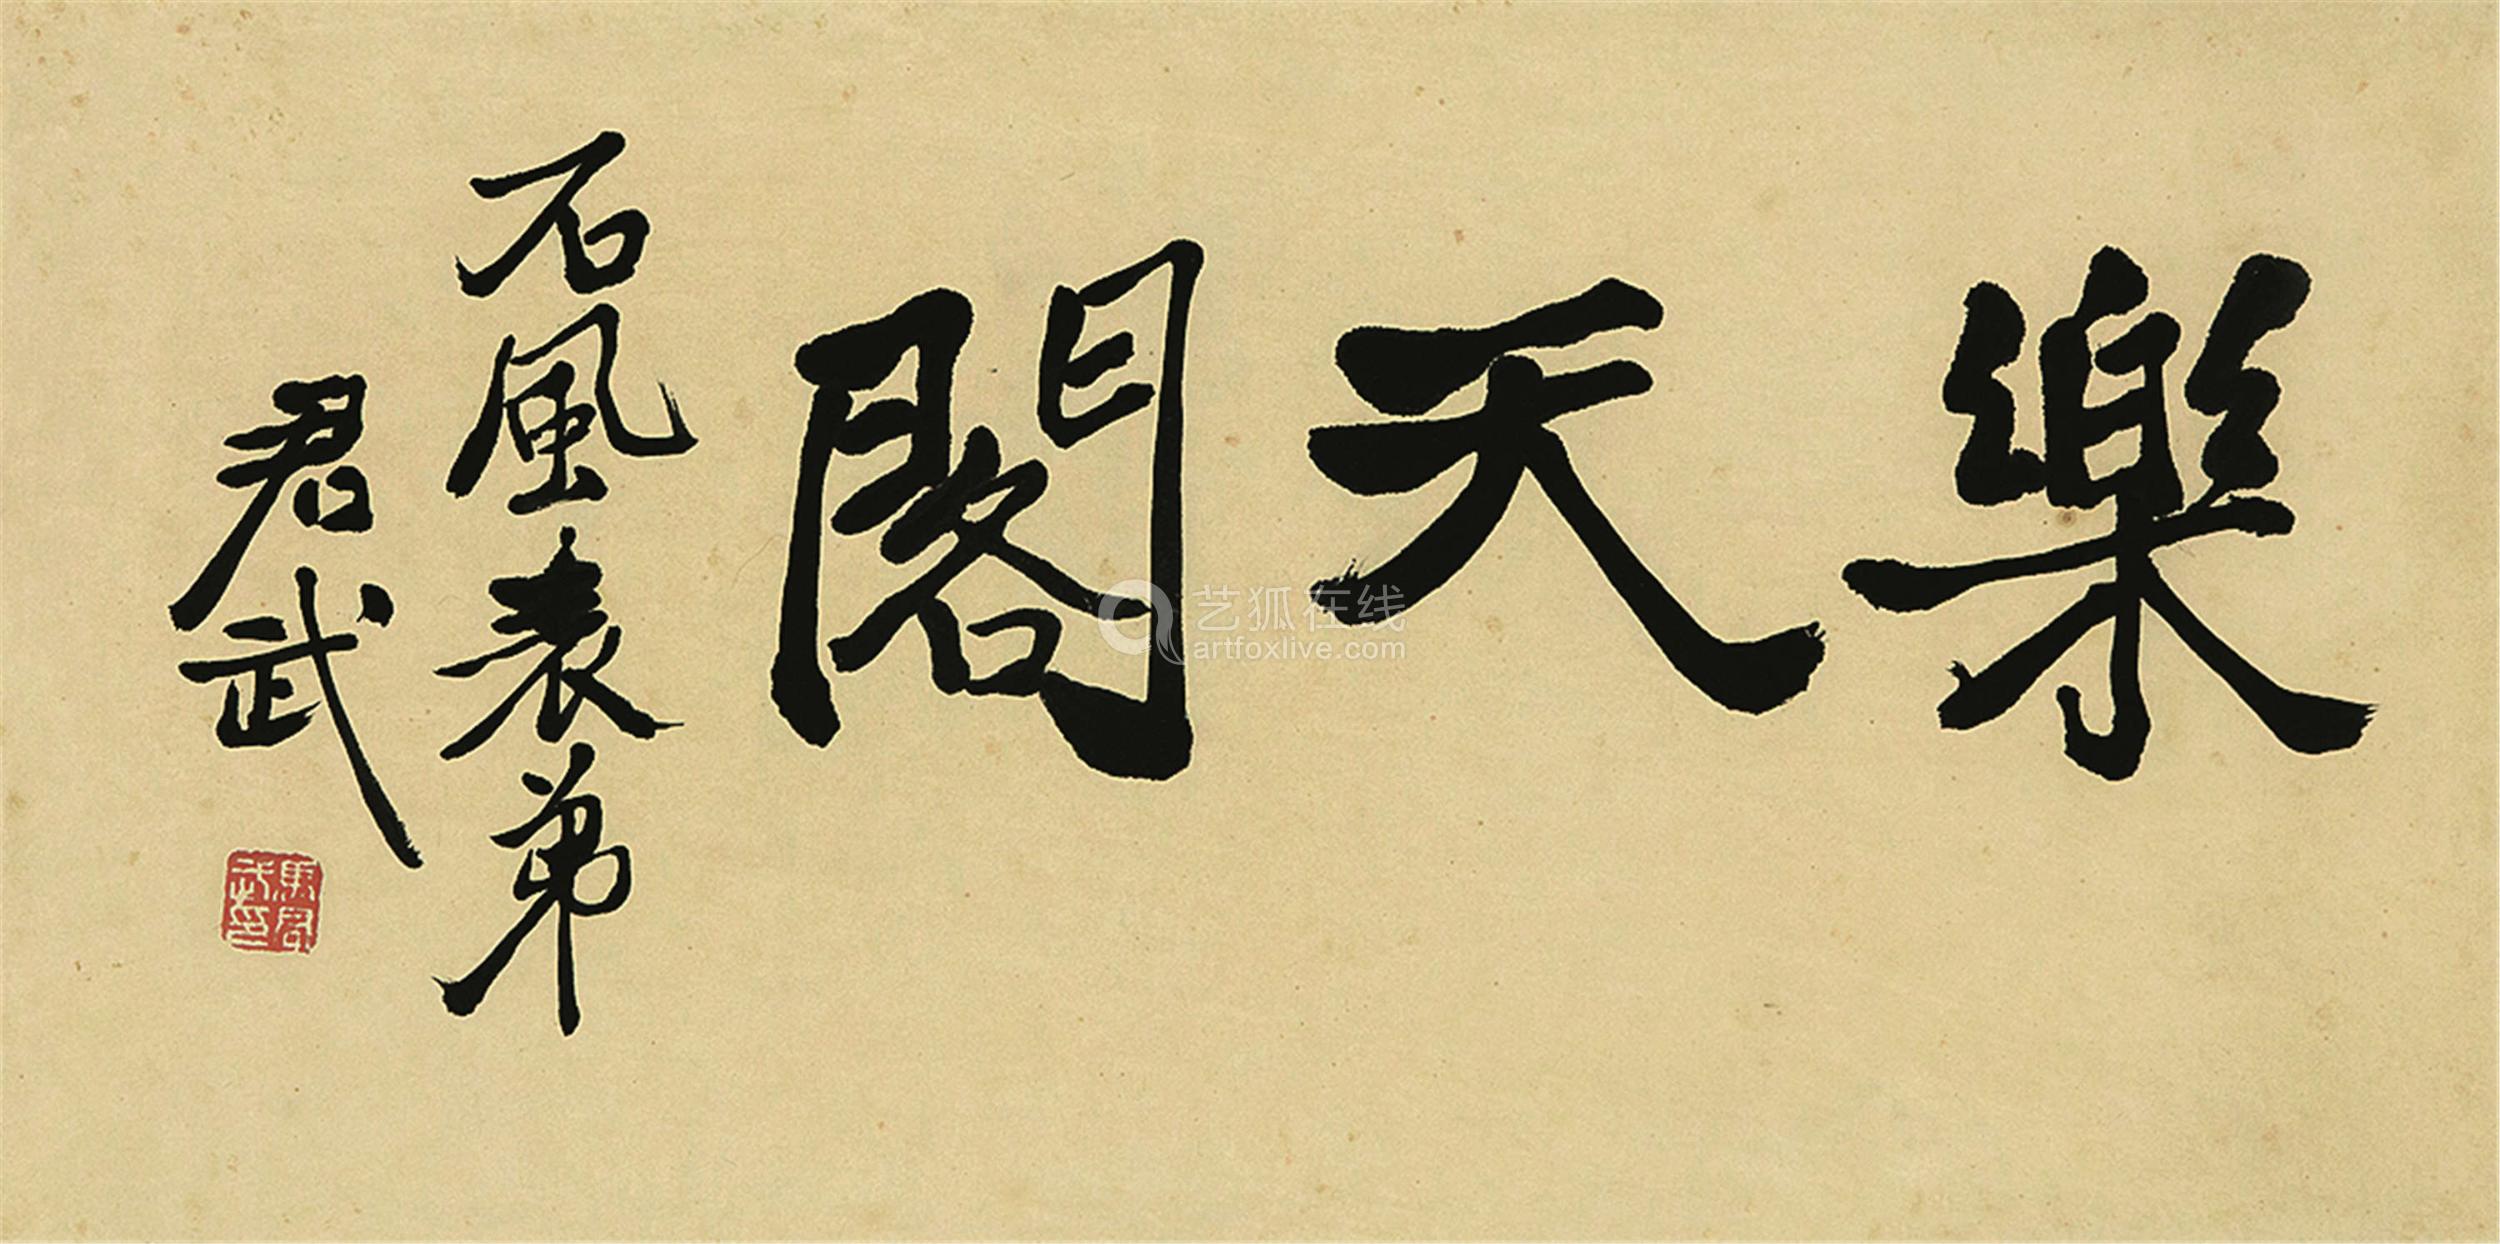 樂天閣
石風表弟
君武
馬君武印
艺狐在线
artfoxlive.com